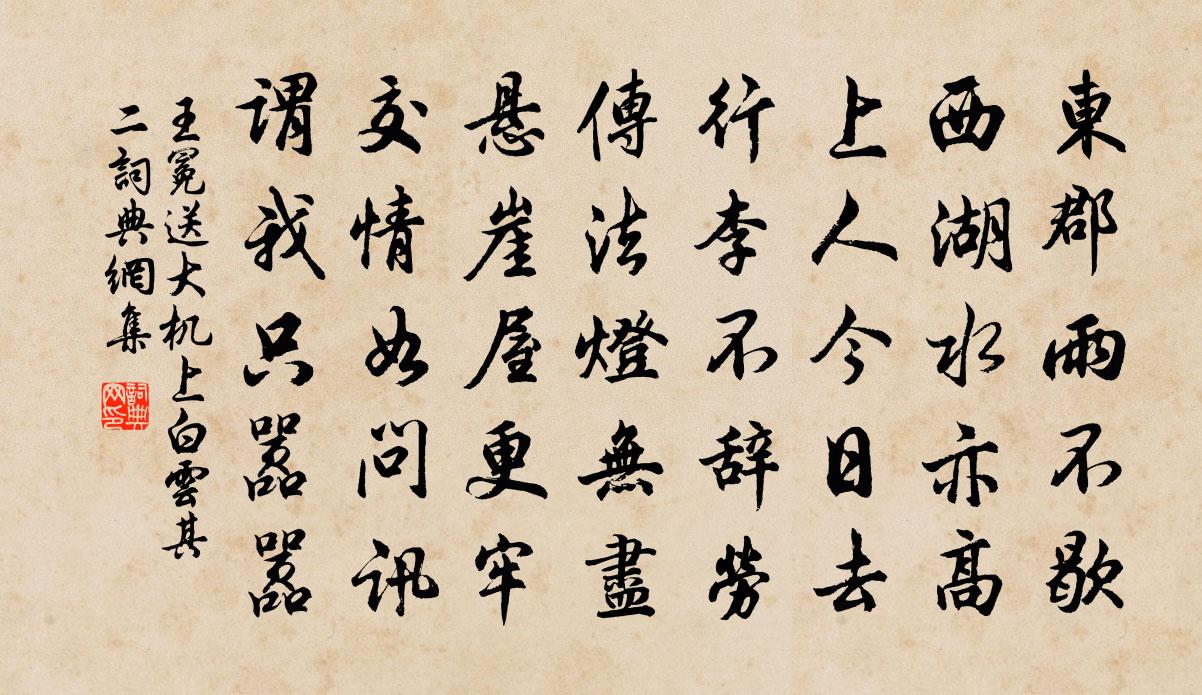 東郡雨不歇
西湖水亦高
上人今日去
行李不辞勞
傳法燈無盡
悬崖屋更牢
交情如问讯
谓我只嚣嚣
王冕送大机上白雲其
二詞典網集
詞典网印